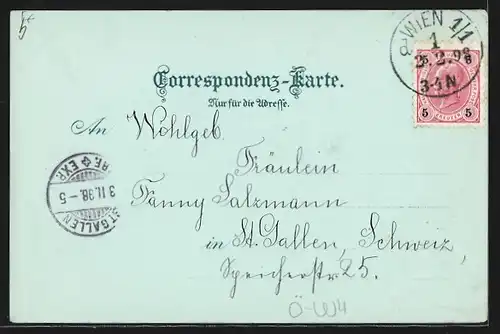 WIEN 1/1
1
2.2.98
3-4N
5 5
Correspondenz-Karte.
Nur für die Adresse.
An Wohlgeb.
Fräulein
Fanny Salzmann
in St. Gallen, Schweiz,
Speicherstr 25.
BRF EXP.
3 II.98.-5
ST. GALLEN
Ö-W4